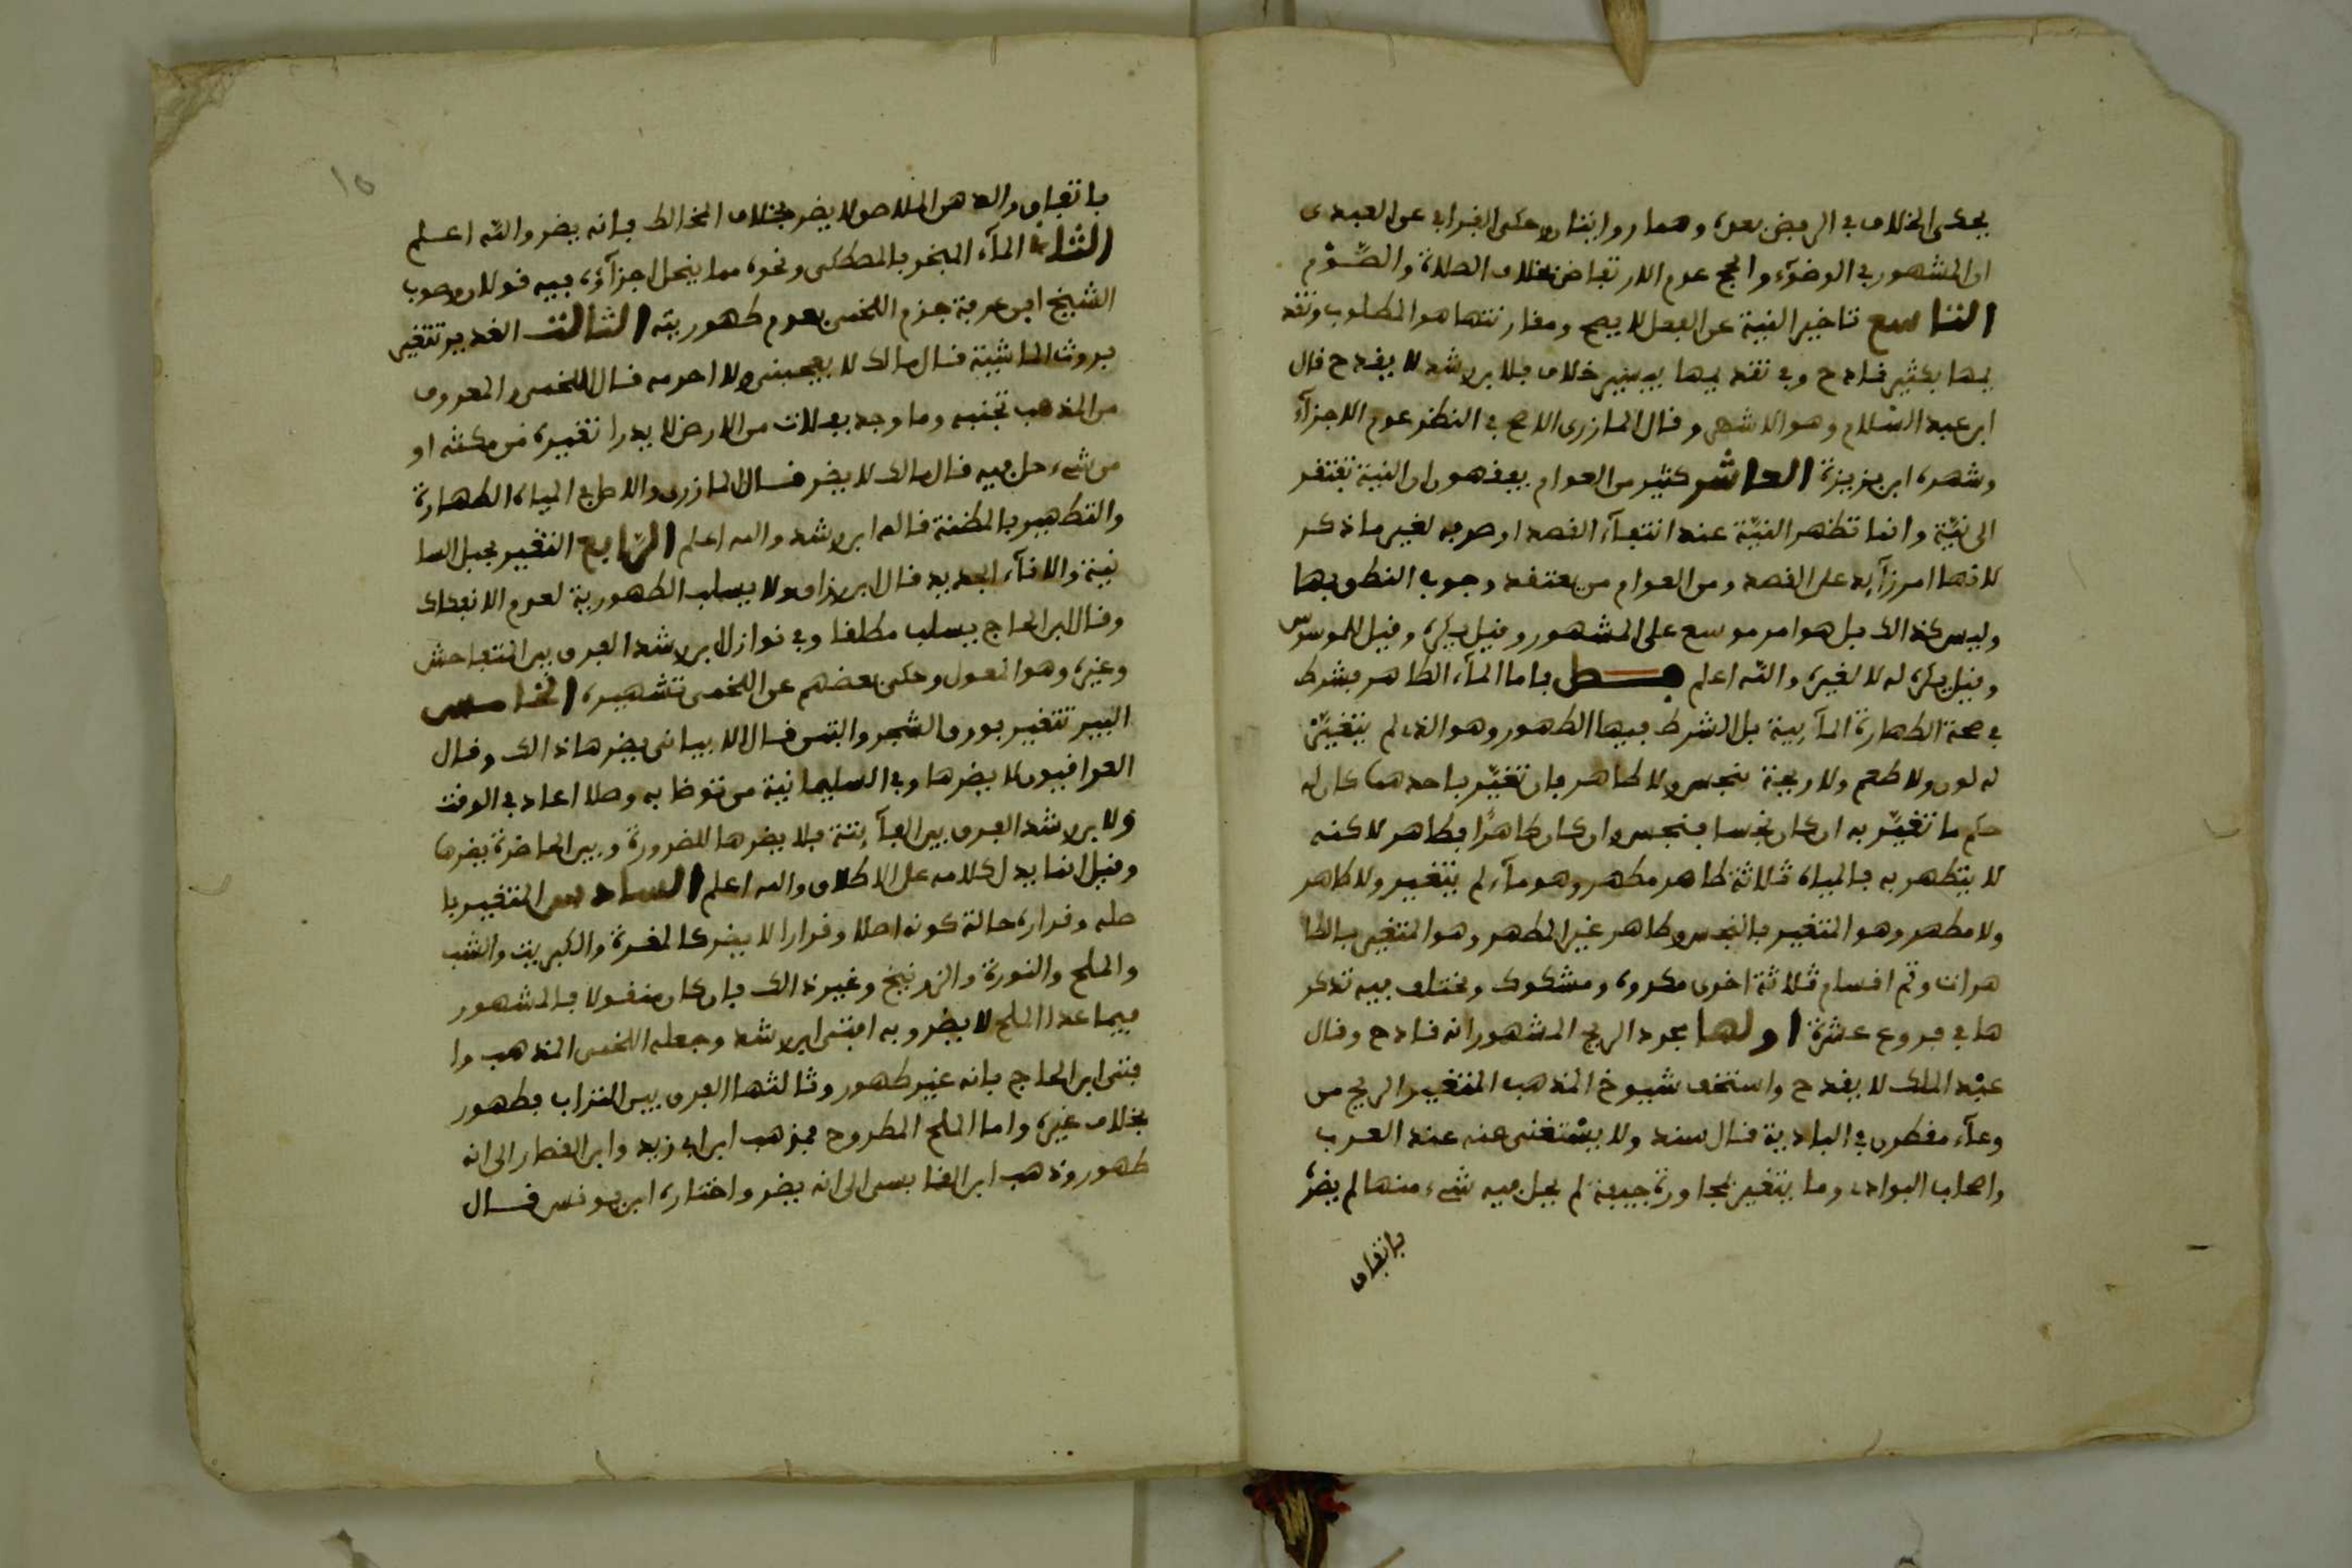 يحكى الخلاف في الرفض بعده وهما روايتان وحكى القرافي عن العبدى
ان المشهور في الوضوء والحج عدم الارتفاض بخلاف الصلاة والصوم
التاسع تاخير النية عن الفعل لا يصح ومقارنتها هو المطلوب وتقد
يمها بكثير فادح وفي تقديمها بيسير خلاف فلابن رشد لا يقدح قال
ابن عبد السلام وهو الاشهر وقال المازرى الاصح في النظر عدم الاجزآء
وشهره ابن بزيزة العاشر كثير من العوام يفهمون ان النية تفتقر
الى نية وانما تظهر النية عند انتفآء القصد او صرفه لغير ما ذكر
لانها امر زآيد على القصد ومن العوام من يعتقد وجوب النطق بها
وليس كذالك بل هو امر موسع على المشهور وقيل يكره وقيل للموسوس
وقيل يكره له لا لغيره والله اعلم فصل فاما المآء الطاهر فشرط
في صحة الطهارة المآيية بل الشرط فيها الطهور وهو الذي لم يتغيّر
له لون ولا طعم ولا ريحة بنجس ولا طاهر فان تغيّر باحدهما كان له
حكم ما تغيّر به ان كان نجسا فنجس وان كان طاهرا فطاهر لاكنه
لا يتطهر به فالمياه ثلاثة طاهر مطهر وهو مآء لم يتغير ولا طاهر
ولا مطهر وهو المتغير بالنجس وطاهر غير المطهر وهو المتغير بالطا
هرات وثم اقسام ثلاثة اخرى مكروه ومشكوك ومختلف فيه تذكر
ها في فروع عشرة اولها مجرد الريح المشهور انه فادح وقال
عبد الملك لا يقدح واستخف شيوخ المذهب المتغير الريح من
وعآء مقطرن في البادية قال سند ولا يستغنى عنه عند العرب
واهل البوادى وما يتغير بمجاورة جيفة لم يحل فيه شيء منها لم يضره
باتفاق
١٥
باتفاق والدهن الملاصق لا يضر بخلاف المخالط فانه يضر والله اعلم
الثانى المآء المبخر بالمصطكى ونحوه مما ينحل اجزآؤه فيه قولان وصوب
الشيخ ابن عرفة جزم اللخمى بعدم طهوريته الثالث الغدير تتغير
بروث الماشية قال مالك لا يعجبنى ولا احرمه قال اللخمى والمعروف
من المذهب تجنبه وما وجد بفلات من الارض لا يدرا تغييره من مكثه او
من شيء حل فيه قال مالك لا يضر قال المازرى والاصل في المياه الطهارة
والتطهير بالمظنة قاله ابن رشد والله اعلم الرابع التغيير بحبل السا
نية والانآء الجديد قال ابن رزاق لا يسلب الطهورية لعدم الانفكاك
وقال ابن الحاج يسلب مطلقا وفي نوازل ابن رشد الفرق بين المتفاحش
وغيره وهو المعول وحكى بعضهم عن اللخمى تشهيره الخامس
البير تتغير بورق الشجر والتبن قال الابيانى يضرها ذالك وقال
العراقيون لا يضرها وفي السليمانية من توضا به وصلا اعاد في الوقت
ولابن رشد الفرق بين الفآيتة فلا يضرها للضرورة وبين الحاضرة يضرها
وقيل انما يدل كلامه على الاطلاق والله اعلم السادس المتغير با
صله وقراره حالة كونه اصلا وقرارا لا يضر كالمغرة والكبريت والشب
والملح والنورة والزرنيخ وغير ذالك فان كان منقولا فالمشهور
فيما عدا الملح لا يضر وبه افتى ابن رشد وجعله اللخمى المذهب وا
فتى ابن الحاج بانه غير طهور وثالثها الفرق بين التراب فطهور
بخلاف غيره واما الملح المطروح فمذهب ابن ابى زيد وابن القصار الى انه
طهور وذهب ابن القابسى الى انه يضر واختاره ابن يونس قال